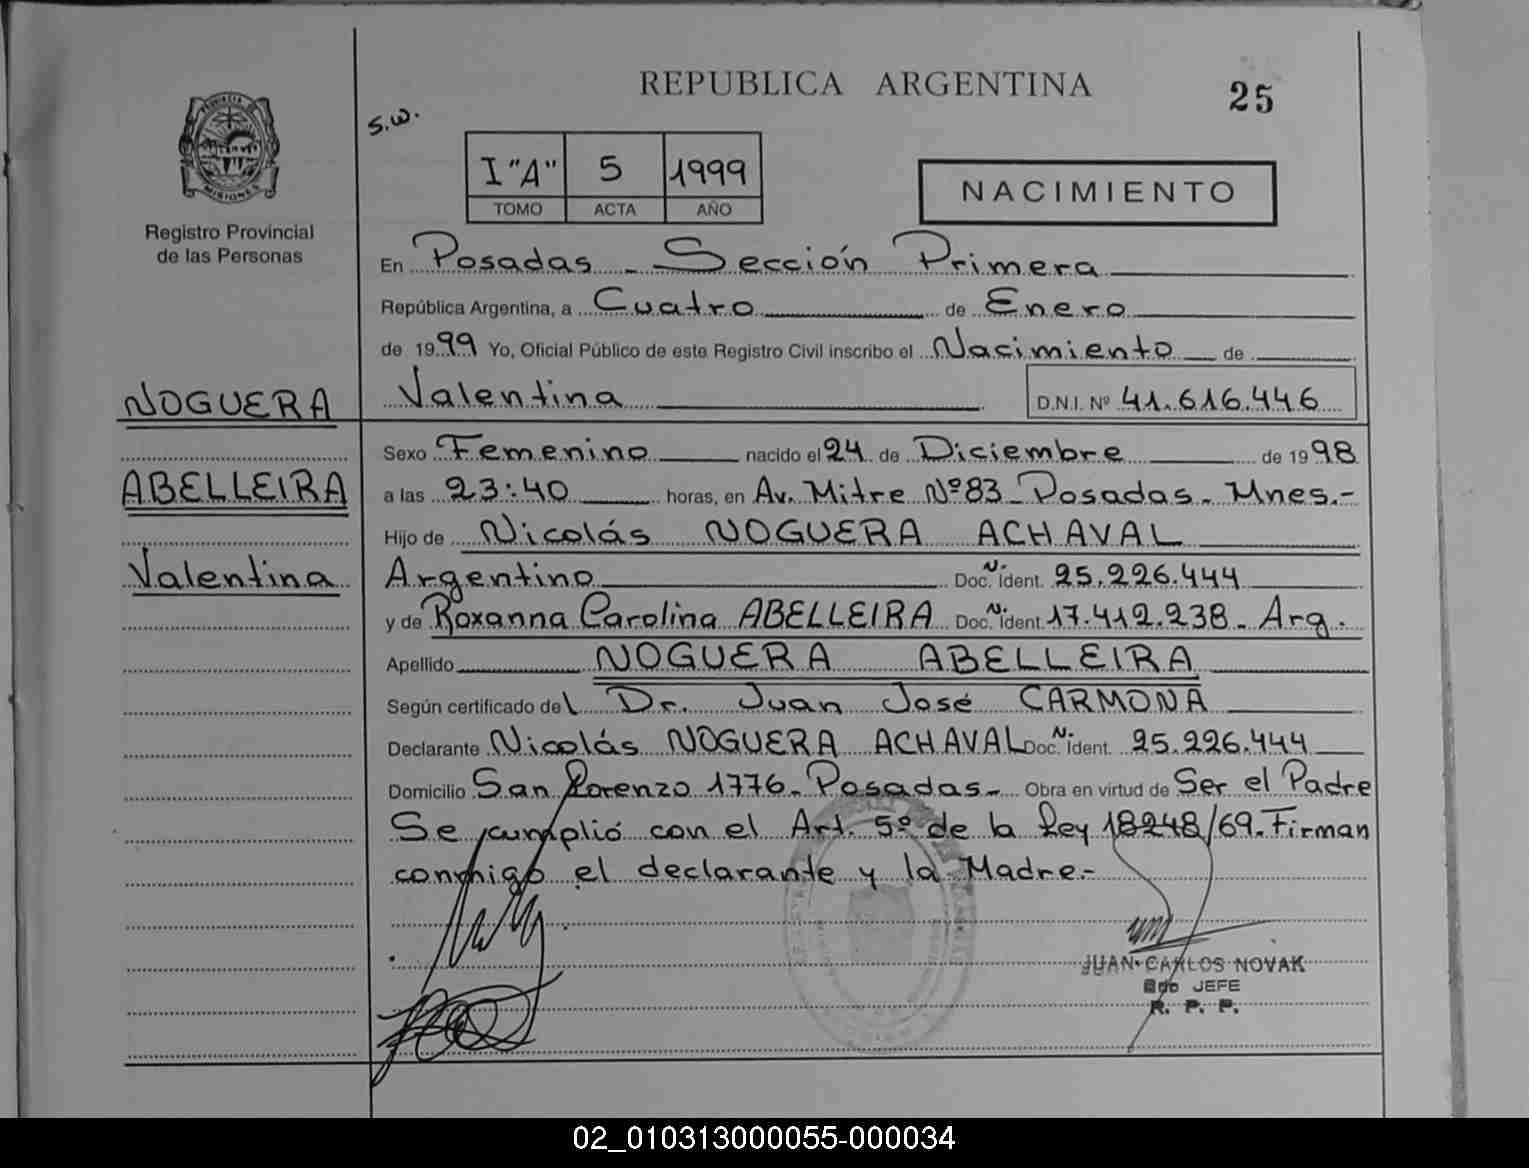 REPUBLICA ARGENTINA
25
s.w.
PROVINCIA DE
MISIONES
Registro Provincial
de las Personas
I "A" 5 1999
TOMO ACTA AÑO
NACIMIENTO
En Posadas - Sección Primera
República Argentina, a Cuatro de Enero
de 1999 Yo, Oficial Público de este Registro Civil inscribo el Nacimiento de
Valentina D.N.I. Nº 41.616.446
NOGUERA
ABELLEIRA
Valentina
Sexo Femenino nacido el 24 de Diciembre de 1998
a las 23:40 horas, en Av. Mitre Nº 83 - Posadas - Mnes.-
Hijo de Nicolás NOGUERA ACHAVAL
Argentino Doc. N. Ident. 25.226.444
y de Roxanna Carolina ABELLEIRA Doc. N. Ident. 17.412.238 - Arg.
Apellido NOGUERA ABELLEIRA
Según certificado del Dr. Juan José CARMONA
Declarante Nicolás NOGUERA ACHAVAL Doc. N. Ident. 25.226.444
Domicilio San Lorenzo 1776 - Posadas - Obra en virtud de Ser el Padre
Se cumplió con el Art. 5º de la Ley 18248/69. Firman
conmigo el declarante y la Madre.-
JUAN CARLOS NOVAK
JEFE
R. P. P.
02_010313000055-000034